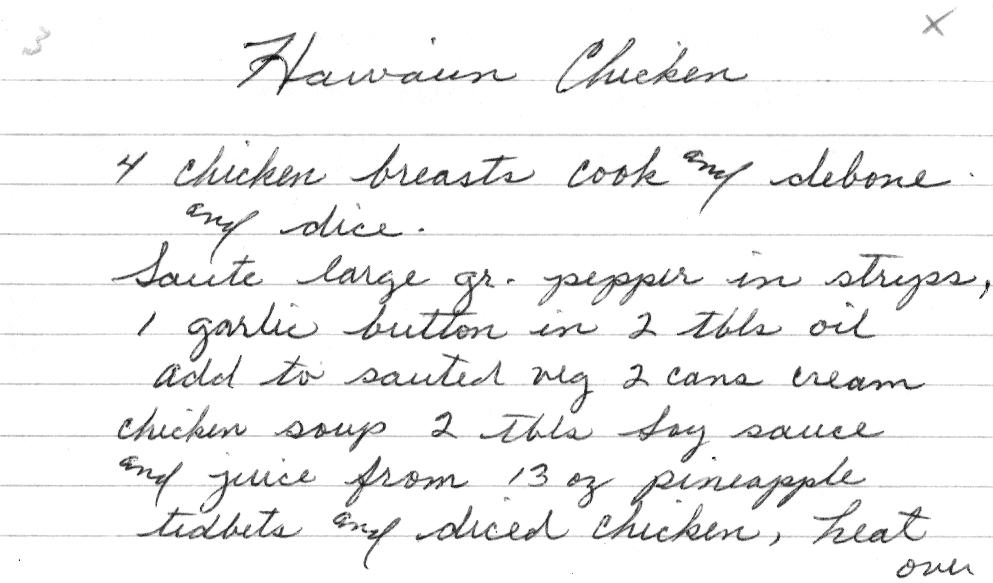 3 X
Hawaiin Chicken
4 chicken breasts cook and debone
and dice.
Saute large gr. pepper in strips,
1 garlic button in 2 tbls oil
add to sauted veg 2 cans cream
chicken soup 2 tbls Soy sauce
and juice from 13 oz pineapple
tidbets and diced chicken, heat
over